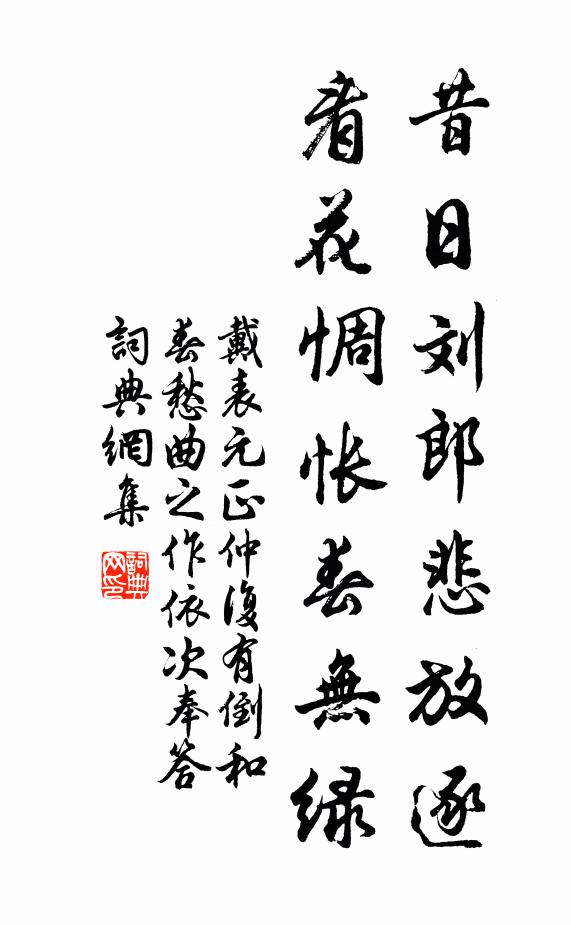 昔日刘郎悲放逐
看花惆怅春無绿
戴表元正仲復有倒和
春愁曲之作依次奉答
詞典網集
詞典网印